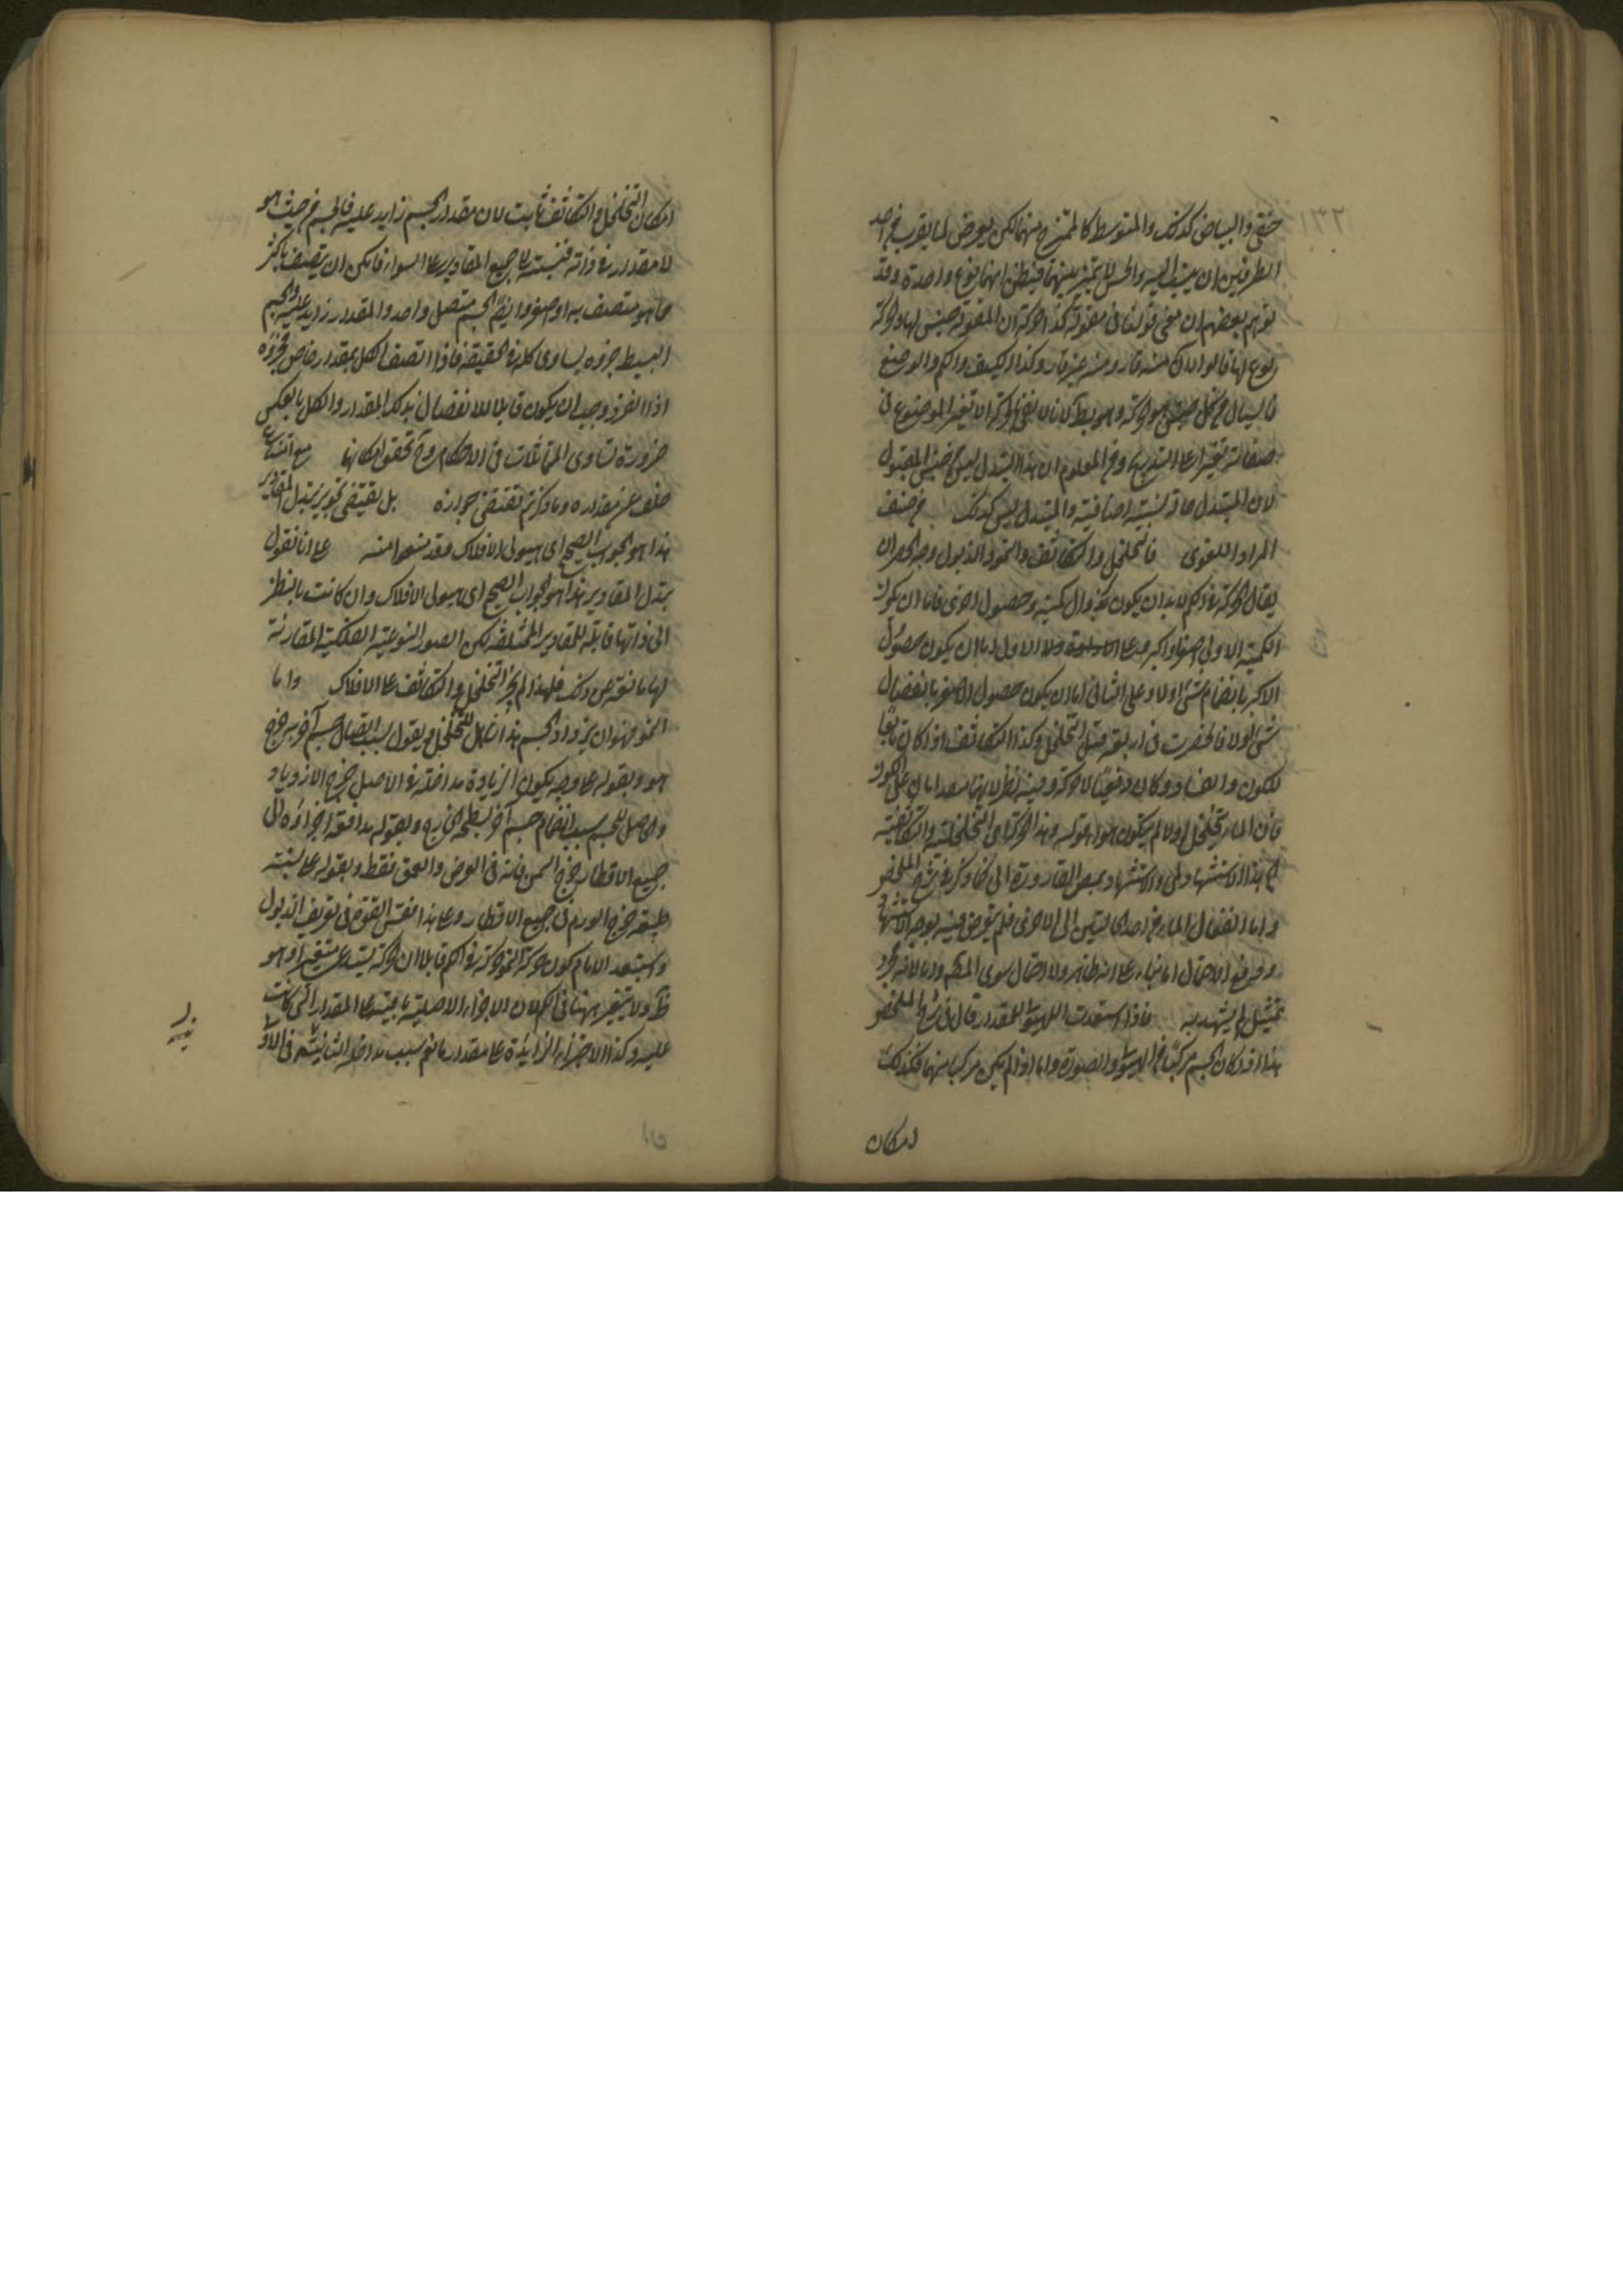 ١٣٢
حقيقى والبياض كذلك والمتوسط كالممتزج منهما لكن يعرض لما يقرب من احد
الطرفين ان ينسب اليه والحس لا يميز بينهما فيظن انهما نوع واحد وقد
توهم بعضهم ان معنى قولنا فى مقولة كذا حركة ان المقولة جنس لها والحركة
نوع لها قالوا ان الاين منه قار ومنه غير قار وكذا الكيف والكم والوضع
فالسيال من كل جنس هو الحركة وهو بط لانا لا نعنى بالحركة الا تغير الموضوع فى
صفاته تغيرا على التدريج ومن المعلوم ان هذا التبدل ليس من جنس المتبدل
لان التبدل حالة نسبية اضافية والمتبدل ليس كذلك
المراد اللغوى فالتخلخل والتكاثف والنمو والذبول وجه الحصر ان
يقال الحركة فى الكم لا بد ان يكون بزوال كمية وحصول اخرى فاما ان يكون
الكمية الاولى اصغر او اكبر وعلى الاول اما ان يكون حصول
الاكبر بانضمام شئ اولا وعلى الثانى اما ان يكون حصول الاصغر بانفصال
شئ اولا فانحصرت فى اربعة قيل التخلخل وكذا التكاثف اذا كان تابعا
للكون والفساد وكان دفعيا لا حركة وفيه نظر
فان الماء يتخلخل اولا ثم يتكون هواء قوله وهذا الحركة اى التخلخلية والتكاثفية
ثم هذا الاستشهاد والاستشهاد بمص القارورة الى ما ذكره فى شرح الملخص
واما انتقال الماء من احدى الى الاخرى فلم يتعرض فيه بوجه الاستشهاد
تمثيل لم يشهد به فاذا استعدت الهيولى للمقدار قال فى شرح الملخص
هذا اذا كان الجسم مركبا من الهيولى والصورة واما اذا لم يكن مركبا منهما فكذلك
امكان
امكان التخلخل والتكاثف ثابت لان مقدار الجسم زايد عليه فالجسم من حيث هو
لا مقدار له فى ذاته فنسبته الى جميع المقادير على السواء فامكن ان يتصف باكثر
ما هو متصف به او اصغر وايضا الجسم متصل واحد والمقدار زايد عليه والجسم
البسيط جزؤه يساوى كله فى الحقيقة فاذا اتصف الكل بمقدار خاص فجزؤه
اذا انفرد وجب ان يكون قابلا للاتصاف بذلك المقدار والكل بالعكس
ضرورة تساوى المتماثلات فى الاحكام وح تحقق امكانها
خلف عن مقداره وما ذكرتم يقتضى جوازه بل يقتضى تجويز تبدل المقادير
هذا هو الجواب الصحيح اى هيولى الافلاك وقد منعوا منه على انا نقول
تبدل المقادير هذا هو الجواب الصحيح اى هيولى الافلاك وان كانت بالنظر
الى ذاتها قابلة للمقادير المختلفة لكن الصور النوعية الفلكية المقارنة
لها مانعة عن ذلك فلهذا لم يجز التخلخل والتكاثف على الافلاك واما
النمو فهو ان يزداد الجسم هذا شامل للتخلخل وبقوله بسبب اتصال جسم آخر به خرج
هو وبقوله على وجه يكون الزيادة مداخلة فى الاصل خرج الازدياد
والحاصل للجسم بسبب انضمام جسم آخر بسطحه الخارج وبقوله مدافعة اجزاءه الى
جميع الاقطار خرج السمن فانه فى العرض والعمق فقط وبقوله على نسبة
طبيعية خرج الورم فى جميع الاقطار وعلى هذا فقس القول فى تعريف الذبول
واستبعد الامام كون حركة النمو حركة فى الكم قابلا ان الحركة يستدعى متغيرا وهو
ظ ولا يتغير ههنا فى الكم لان الاجزاء الاصلية باقية على المقدار التى كانت
عليه وكذا الاجزاء الزايدة على مقدار ما نعم بسبب مداخلة الثانية فى الاولى